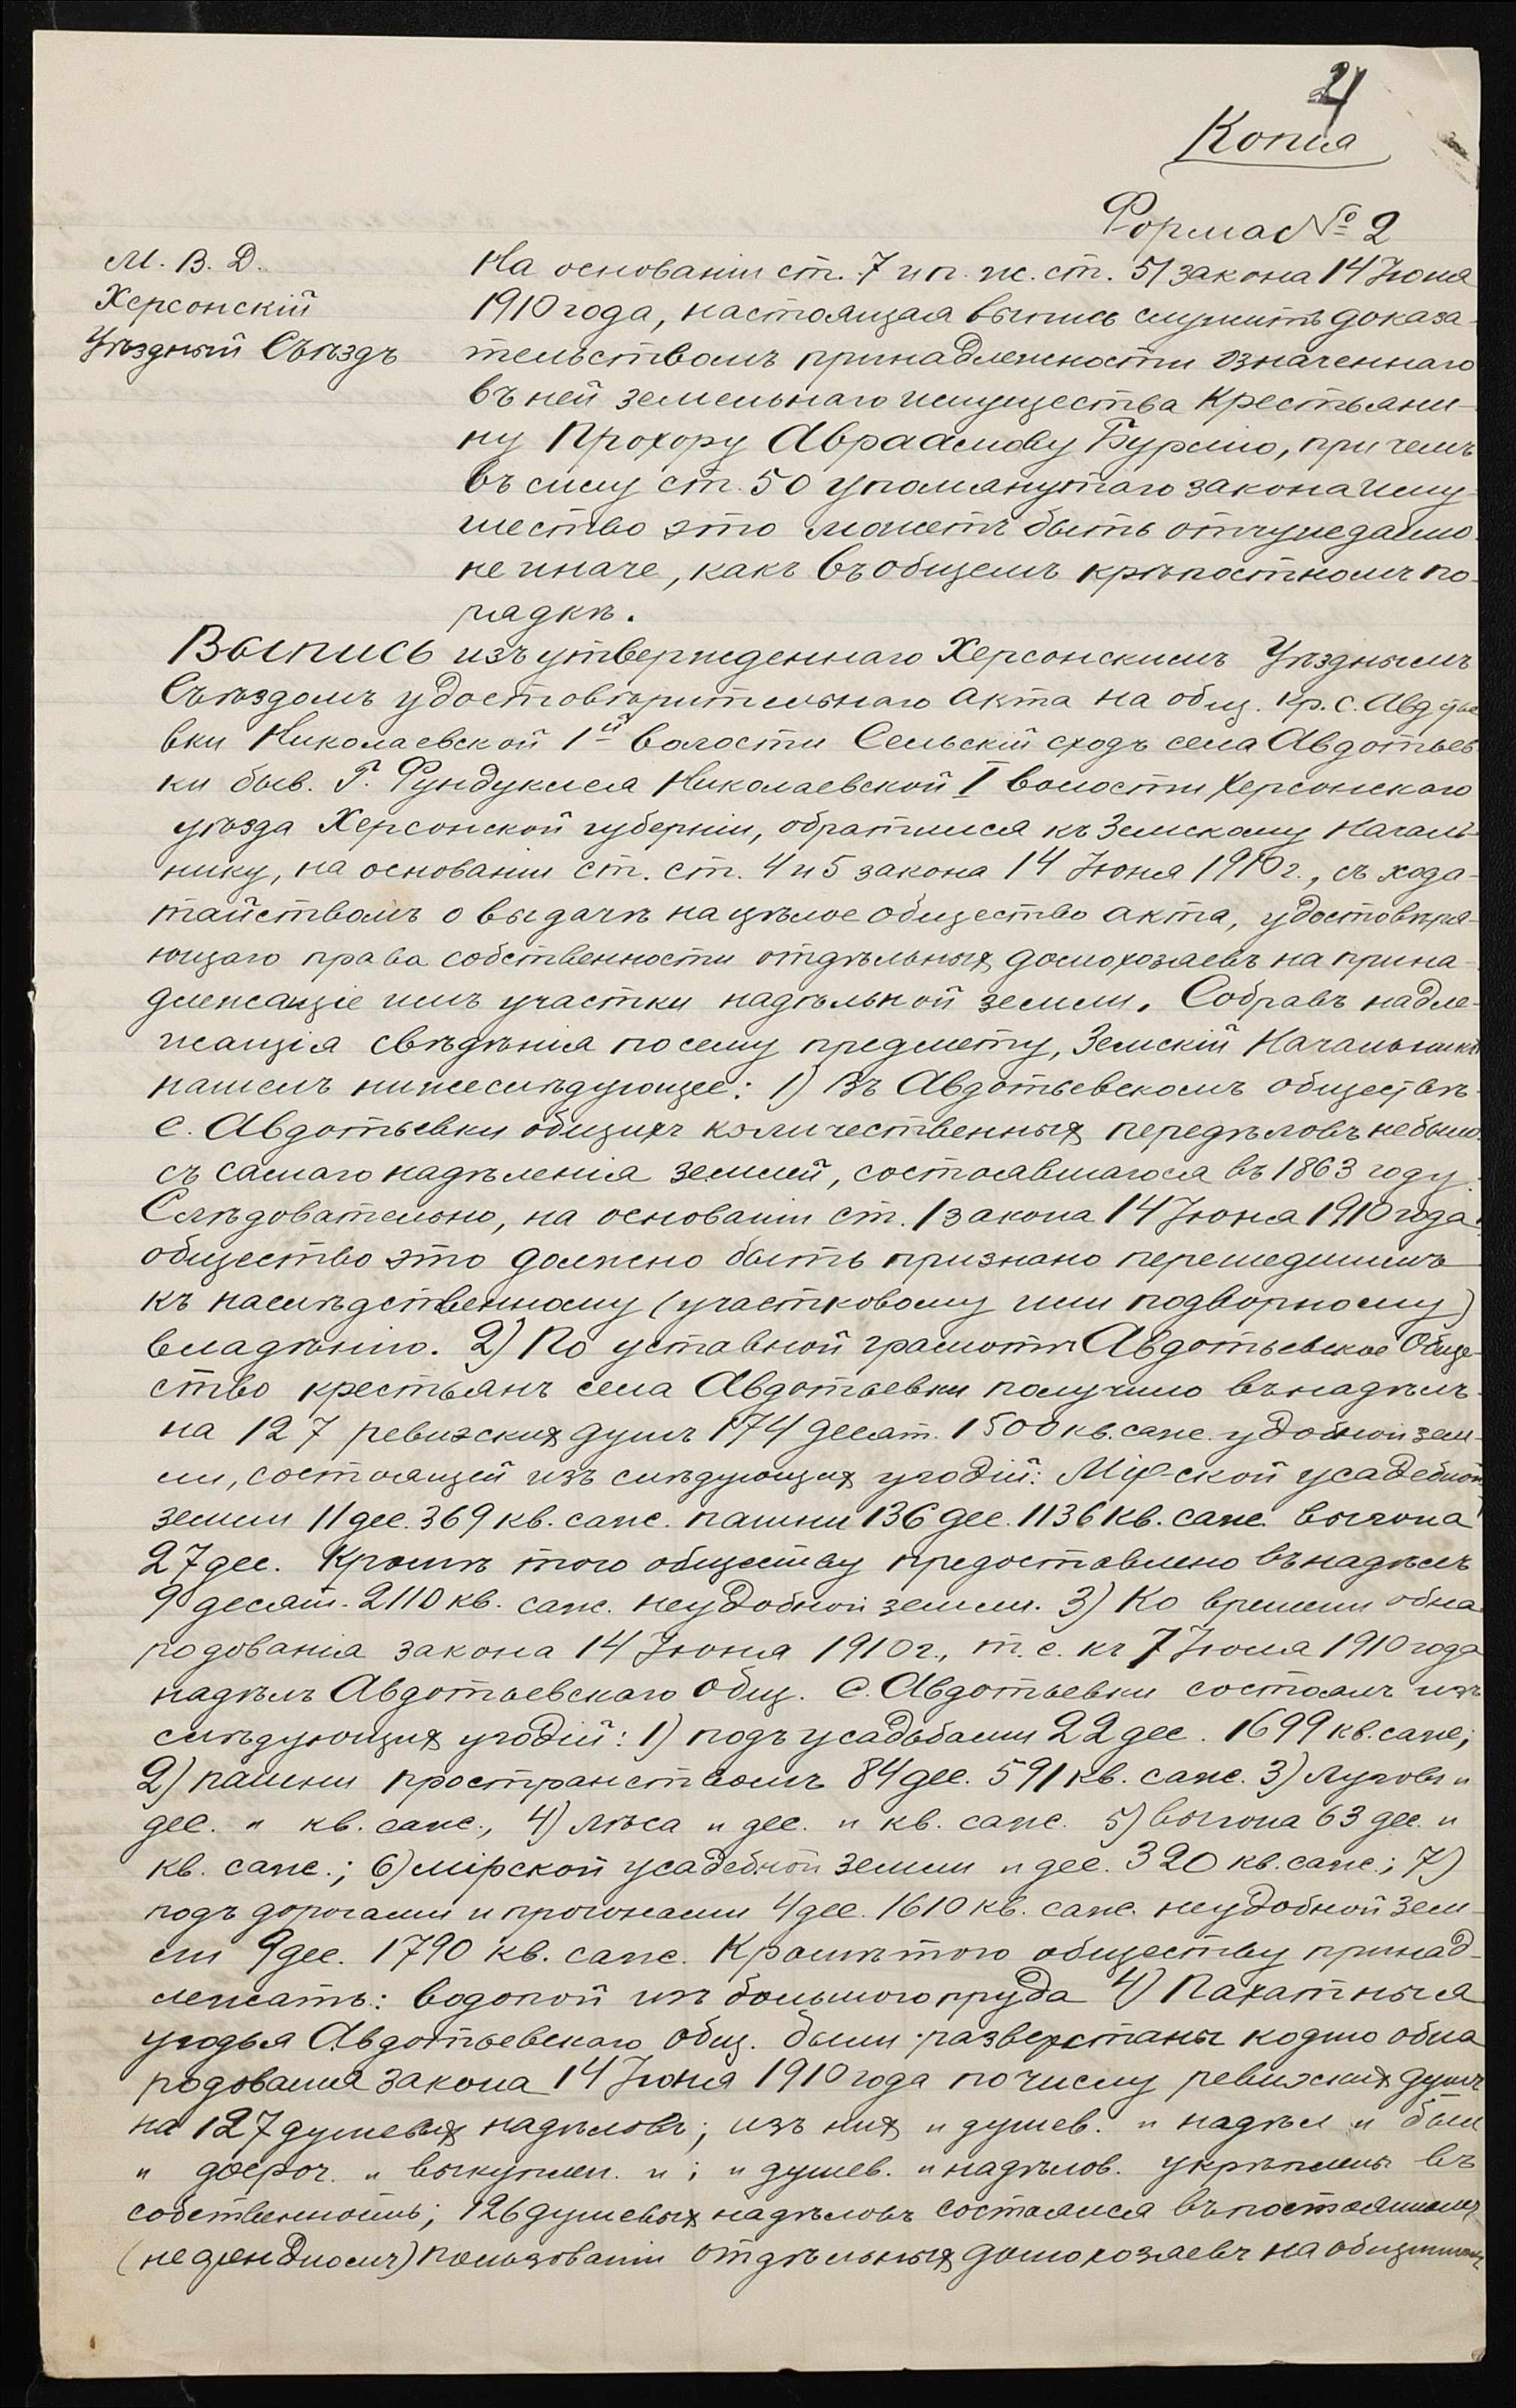 21
Копия
Форма № 2
М. В. Д.
Херсонскій
Уѣздный Съѣздъ
На основаніи ст. 7 и п. ж. ст. 51 закона 14 Іюня
1910 года, настоящая выпись служитъ доказа-
тельствомъ принадлежности означеннаго
въ ней земельнаго имущества крестьяни-
ну Прохору Авраамову Бурлію, при чемъ
въ силу ст. 50 упомянутаго закона иму-
щество это можетъ быть отчуждаемо
не иначе, какъ въ общемъ крѣпостномъ по-
рядкѣ.
Выпись изъ утвержденнаго Херсонскимъ Уѣзднымъ
Съѣздомъ удостовѣрительнаго акта на общ. кр. с. Авдотье
вки Николаевской 1й волости Сельскій сходъ села Авдотьев
ки быв. Г. Фундуклея Николаевской I волости Херсонскаго
уѣзда Херсонской губерніи, обратился къ Земскому Началь-
нику, на основаніи ст. ст. 4 и 5 закона 14 Іюня 1910 г., съ хода-
тайствомъ о выдачѣ на цѣлое общество акта, удостовѣря-
ющаго права собственности отдѣльных домохозяевъ на прина-
длежащіе имъ участки надѣльной земли. Собравъ надле-
жащія свѣдѣнія по сему предмету, Земскій Начальникъ
нашелъ нижеслѣдующее: 1) Въ Авдотьевскомъ обществѣ
с. Авдотьевки общихъ количественных передѣловъ не было
съ самаго надѣленія землей, состоявшагося въ 1863 году.
Слѣдовательно, на основаніи ст. 1 закона 14 Іюня 1910 года
общество это должно быть признано перешедшимъ
къ наслѣдственному (участковому или подворному)
владѣнію. 2) По уставной грамотѣ Авдотьевское Обще-
ство крестьянъ села Авдотьевки получило въ надѣлъ
на 127 ревизских душъ 174 десят. 1500 кв. саж. удобной зем-
ли, состоящей изъ слѣдующих угодій: Мірской усадебной
земли 11 дес. 369 кв. саж. пашни 136 дес. 1136 кв. саж. выгона
27 дес. Кромѣ того обществу предоставлено въ надѣлъ
9 десят. 2110 кв. саж. неудобной земли. 3) Ко времени обна
родованія закона 14 Іюня 1910 г., т. е. къ 7 Іюля 1910 года
надѣлъ Авдотьевскаго Общ. с. Авдотьевки состоялъ изъ
слѣдующих угодій: 1) подъ усадьбами 22 дес. 1699 кв. саж;
2) пашни пространствомъ 84 дес. 591 кв. саж. 3) Луговъ "
дес. " кв. саж., 4) лѣса " дес. " кв. саж. 5) выгона 63 дес. "
кв. саж.; 6) мірской усадебной земли " дес. 320 кв. саж.; 7)
подъ дорогами и прогонами 4 дес. 1610 кв. саж. неудобной зем-
ли 9 дес. 1790 кв. саж. Кромѣ того обществу принад-
лежатъ: водопой изъ большого пруда 4) Пахатныя
угодья Авдотьевскаго общ. были разверстаны ко дню обна
родованія закона 14 Іюня 1910 года по числу ревизских душъ
на 127 душевых надѣловъ; изъ них " душев. " надѣл " был
" досроч. " выкуплен. " ; " душев. " надѣлов. укрѣплены въ
собственность; 126 душевых надѣловъ состоялися въ постоянномъ
(не арендномъ) пользованіи отдѣльных домохозяевъ на общинномъ